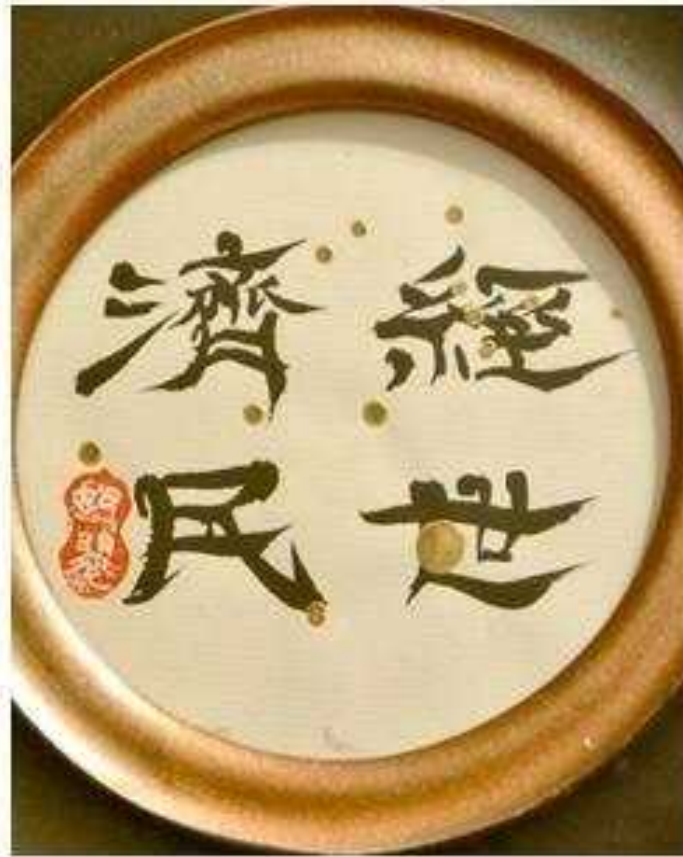 經世
濟民